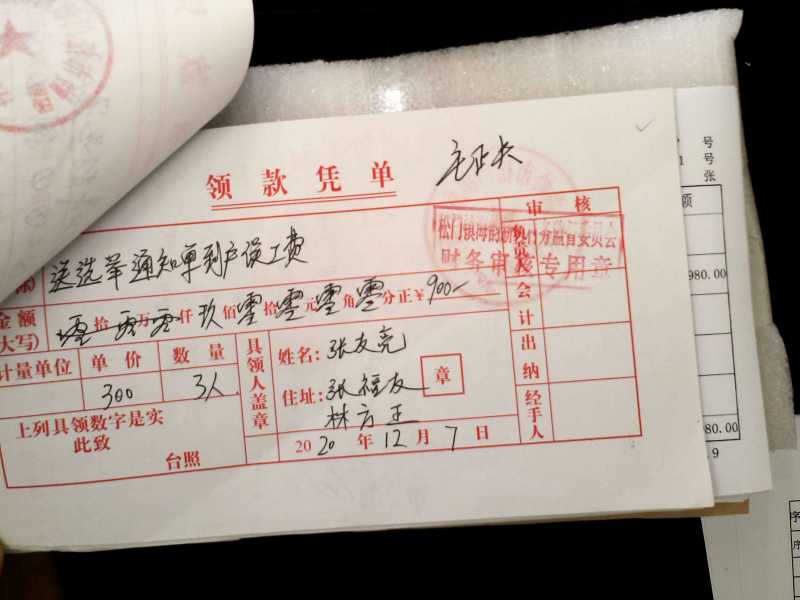 号
号
张
领款凭单
审核
送选举通知单到户误工费
松门镇海韵
财务审核专用章
金额
大写)
零拾零万零仟玖佰零拾零元零角零分正¥900-
会计
计量单位 单价 数量
300 3人
具领人盖章
姓名:张友亮
住址:张福友
林方正
章
出纳
经手人
上列具领数字是实
此致
台照
2020年12月7日
额
980.00
80.00
9
序
序